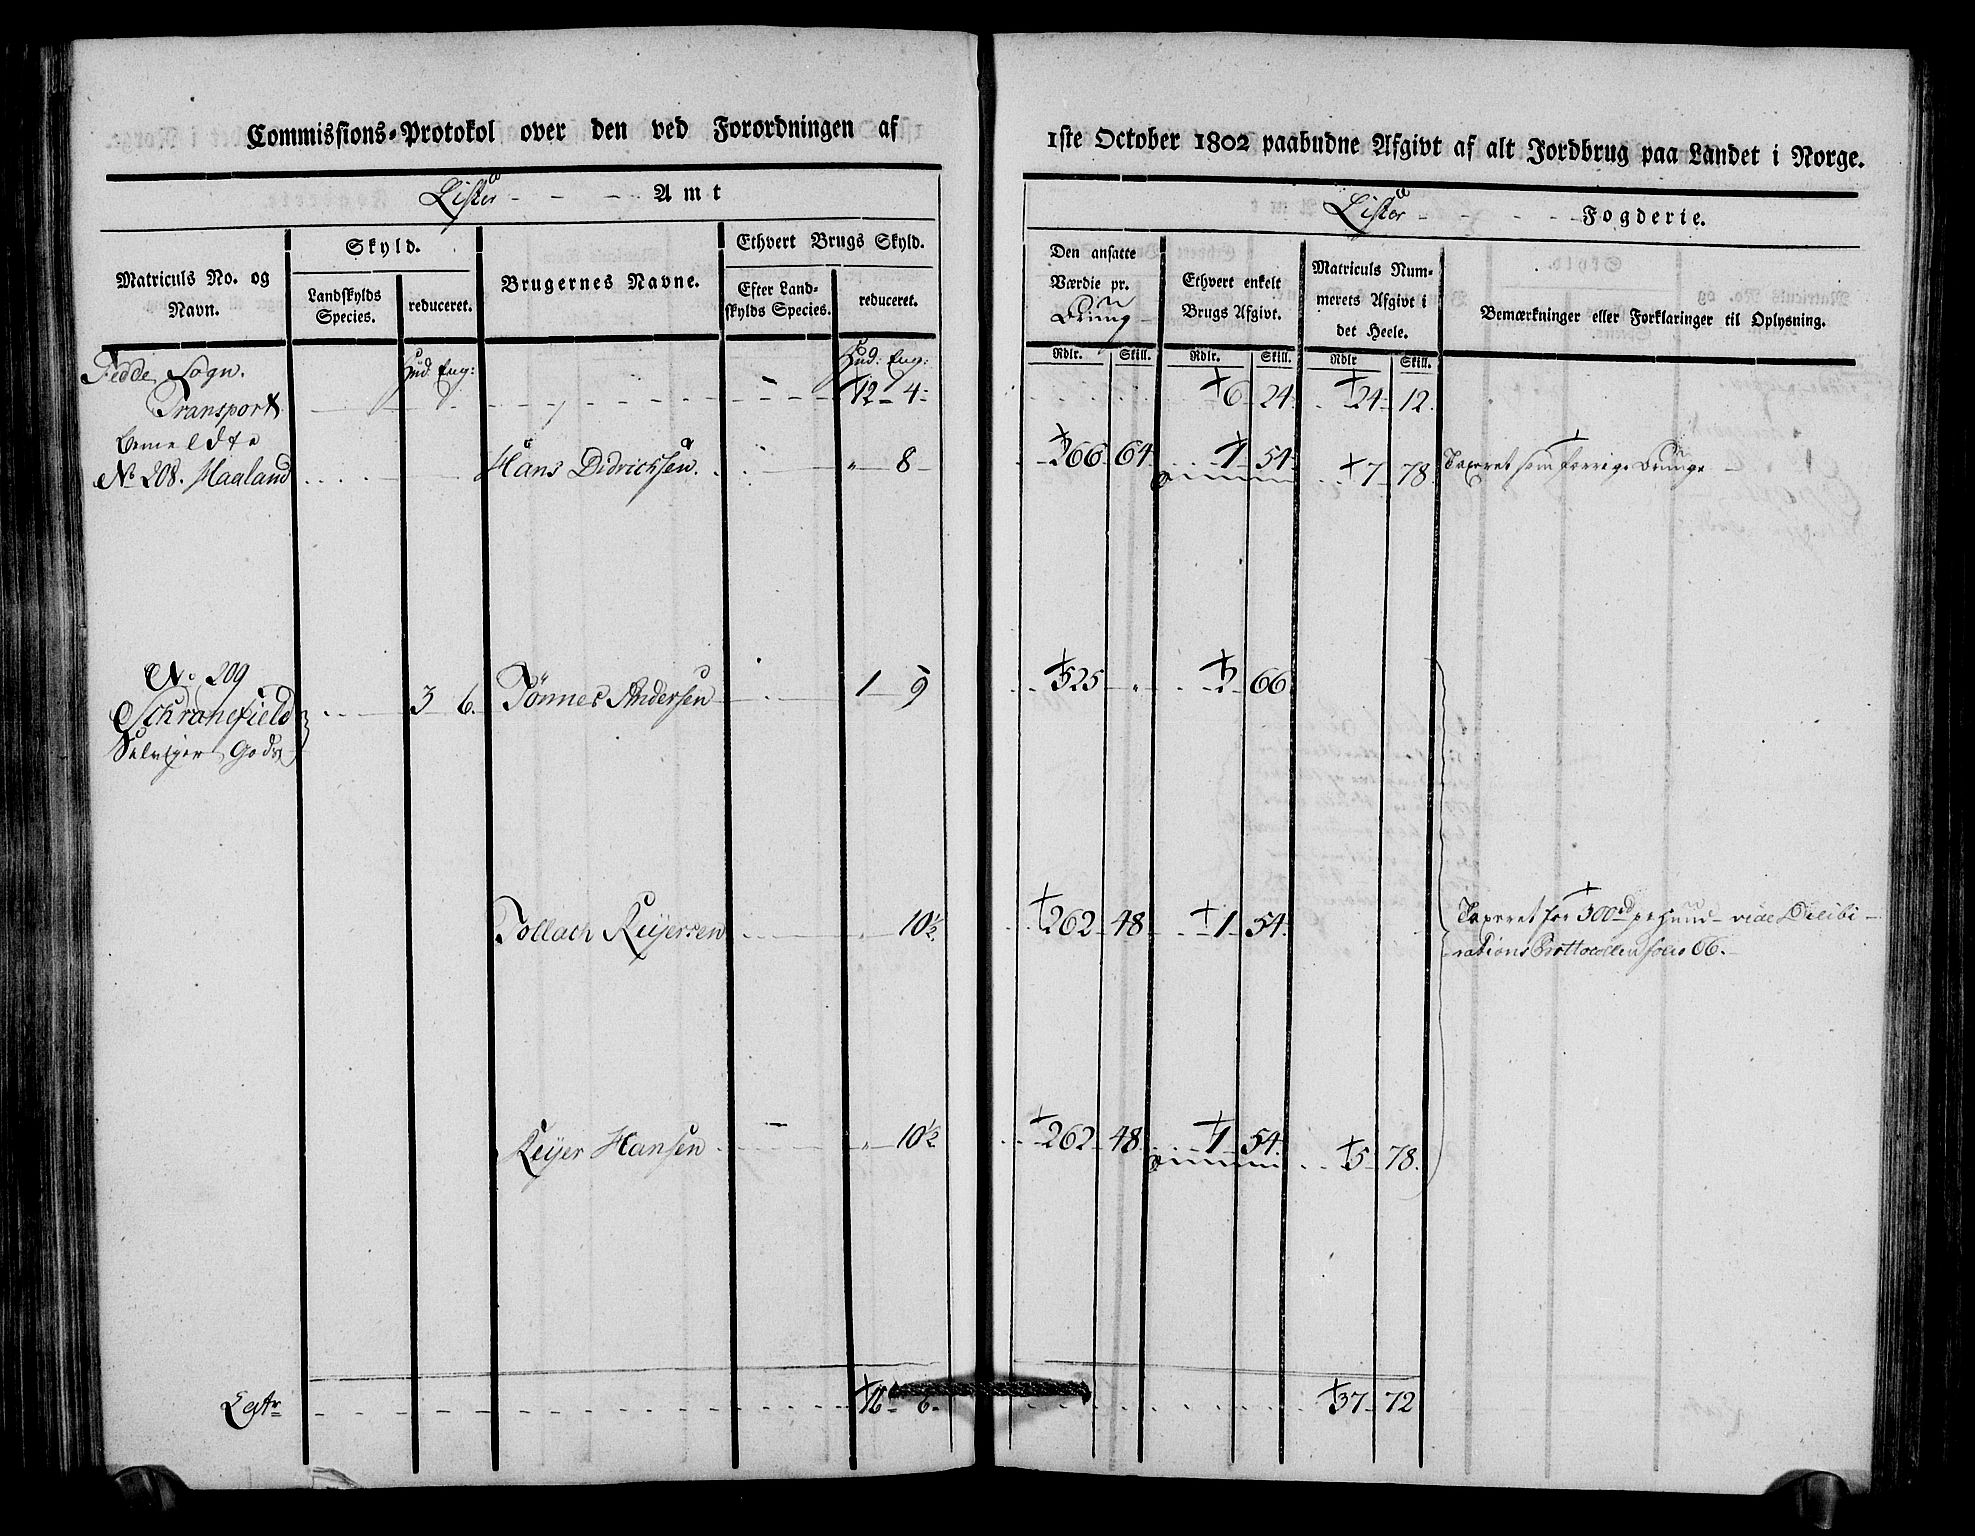 Commissions-Protokol over den ved Forordningen af
1ste October 1802 paabudne Afgivt af alt Jordbrug paa Landet i Norge.
Lister - - - Amt
Lister - - - - Fogderie.
Matriculs No. og Navn.
Skyld.
Landskylds Species.
reduceret.
Brugernes Navne.
Ethvert Brugs Skyld.
Efter Landskylds Species.
reduceret.
Den ansatte Værdie pr.
Ethvert enkelt Brugs Afgivt.
Matriculs Nummerets Afgivt i det Heele.
Bemærkninger eller Forklaringer til Oplysning.
Rdlr. Skill. Rdlr. Skill. Rdlr Skill.
Fedde Sogn. Hud Eng: Hud: Eng:
Transport 12 4 6 24 24 12
bemeldte
No 208. Haaland Hans Didrichsen. " 8 266 64 1 54 7 78 Taxeret som forrige
No 209
3 6. Tønnes Andersen 1 9 525 " 2 66
Gods
Tollach Reijersen " 10½ 262 48 1 54 Taxeret for 300rd pr Huud vide Delibi-
rations Prottocollen folio 66.
Reijer Hansen " 10½ 262 48 1 54 5 78.
Latr 16 6 37 72